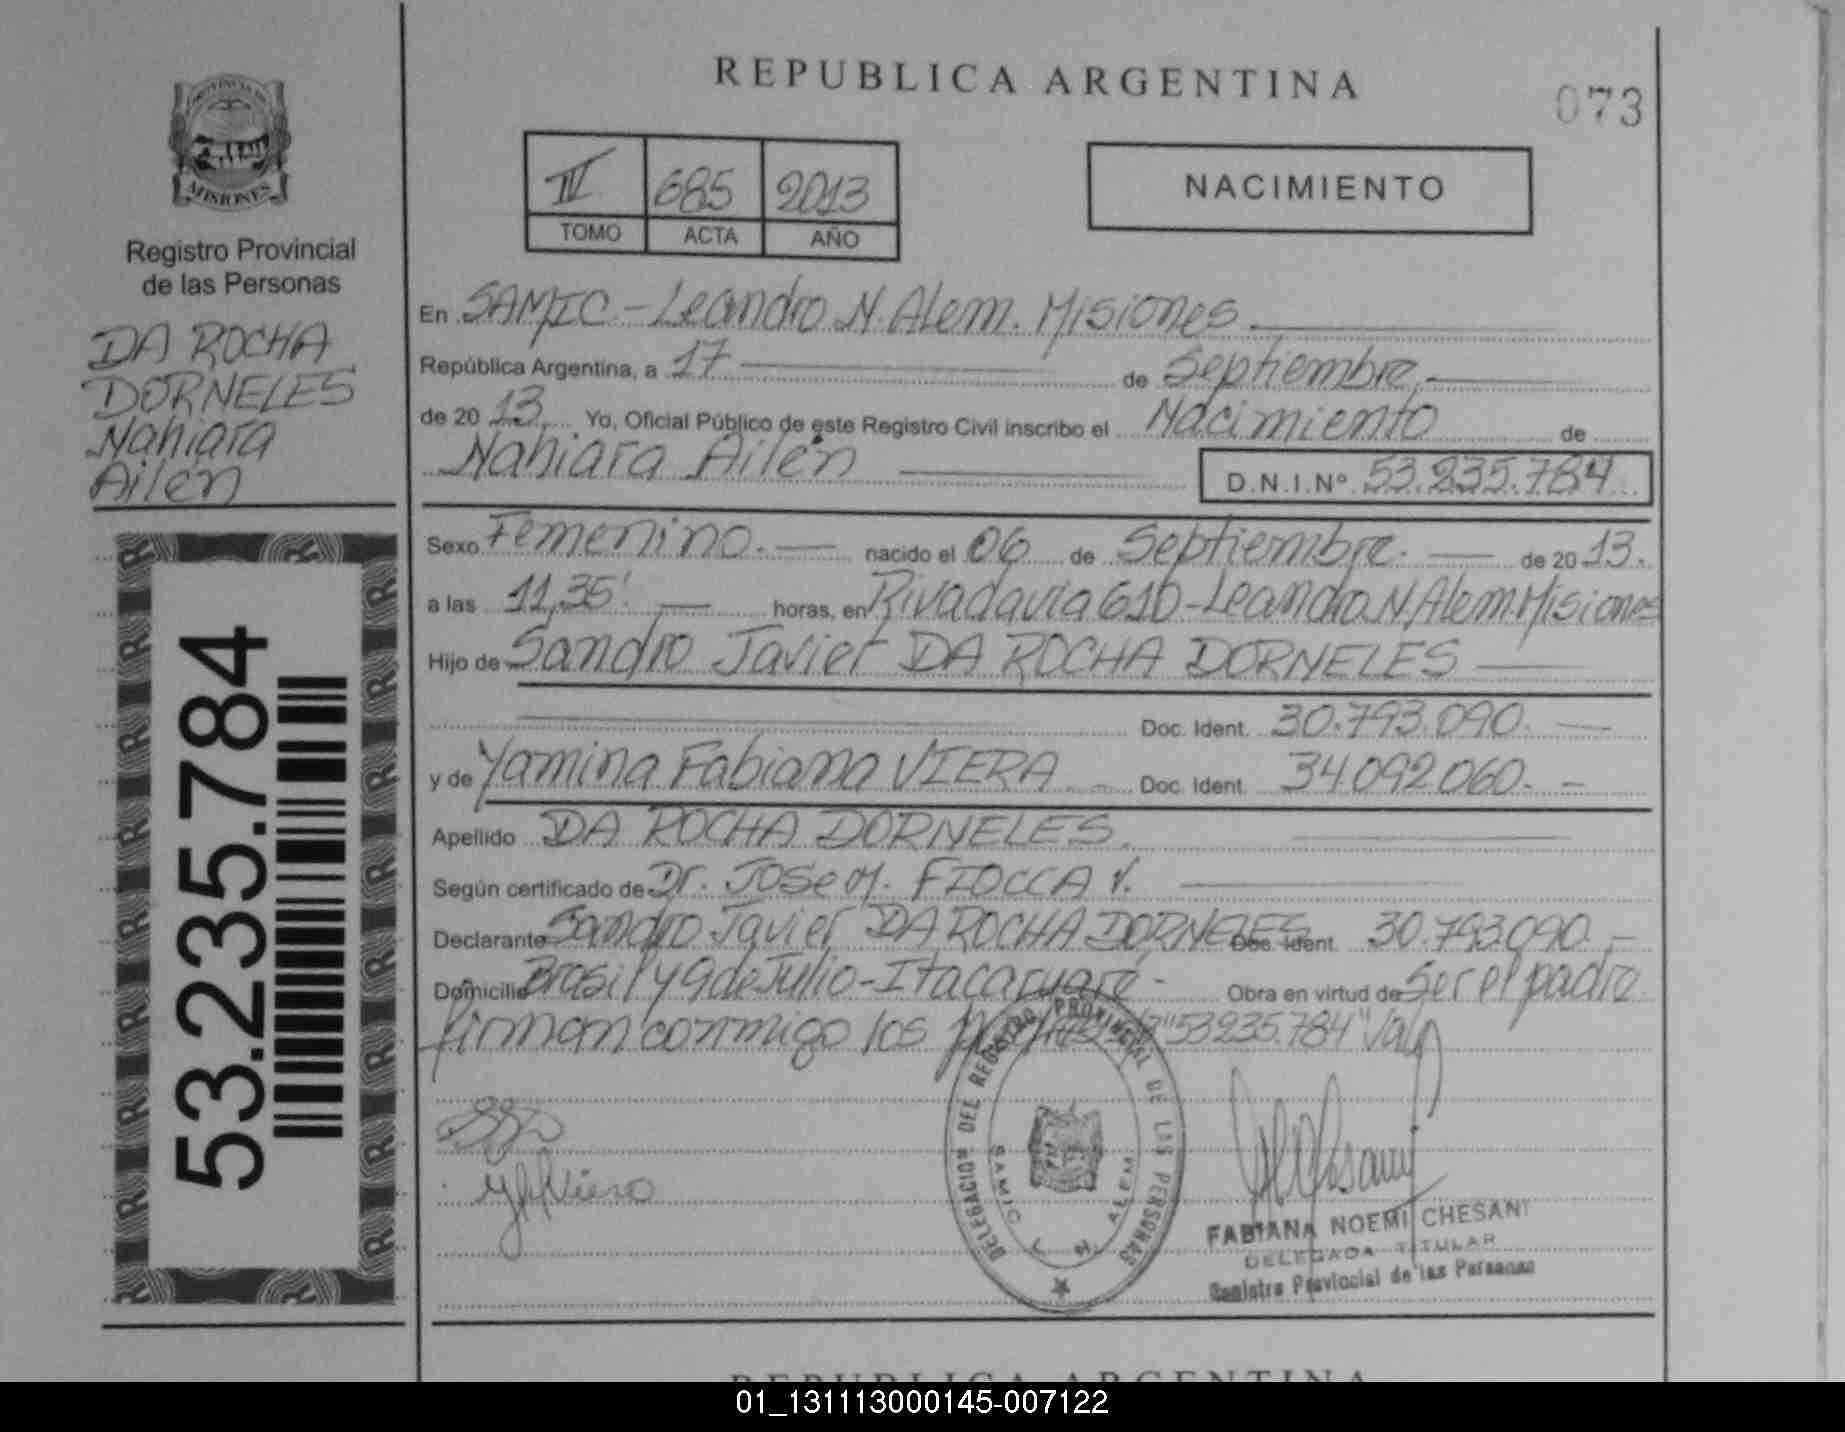 REPUBLICA ARGENTINA
073
PROVINCIA DE
MISIONES
Registro Provincial
de las Personas
DA ROCHA
DORNELES
Nahiara
Ailén
53.235.784
IV 685 2013
TOMO ACTA AÑO
NACIMIENTO
En SAMIC - Leandro N. Alem. Misiones
República Argentina, a 17 de Septiembre
de 20 13 Yo, Oficial Público de este Registro Civil inscribo el Nacimiento de
Nahiara Ailén D.N.I.Nº 53.235.784
Sexo Femenino. nacido el 06 de Septiembre. de 20 13.
a las 11,35' horas, en Rivadavia 610 - Leandro N. Alem. Misiones
Hijo de Sandro Javier DA ROCHA DORNELES
Doc. Ident. 30.793.090.
y de Yamina Fabiana VIERA Doc. Ident. 34.092.060.
Apellido DA ROCHA DORNELES.
Según certificado de Dr. JOSE M. FIOCCA V.
Declarante Sandro Javier DA ROCHA DORNELES Doc. Ident. 30.793.090.
Domicilio Brasil y 9 de Julio - Itacaruaré - Obra en virtud de ser el padre
firman conmigo los "53235.784"
DELEGACION DEL REGISTRO PROVINCIAL DE LAS PERSONAS
SAMIC L. N. ALEM
FABIANA NOEMI CHESANI
DELEGADA TITULAR
Registro Provincial de las Personas
REPUBLICA ARGENTINA
01_131113000145-007122